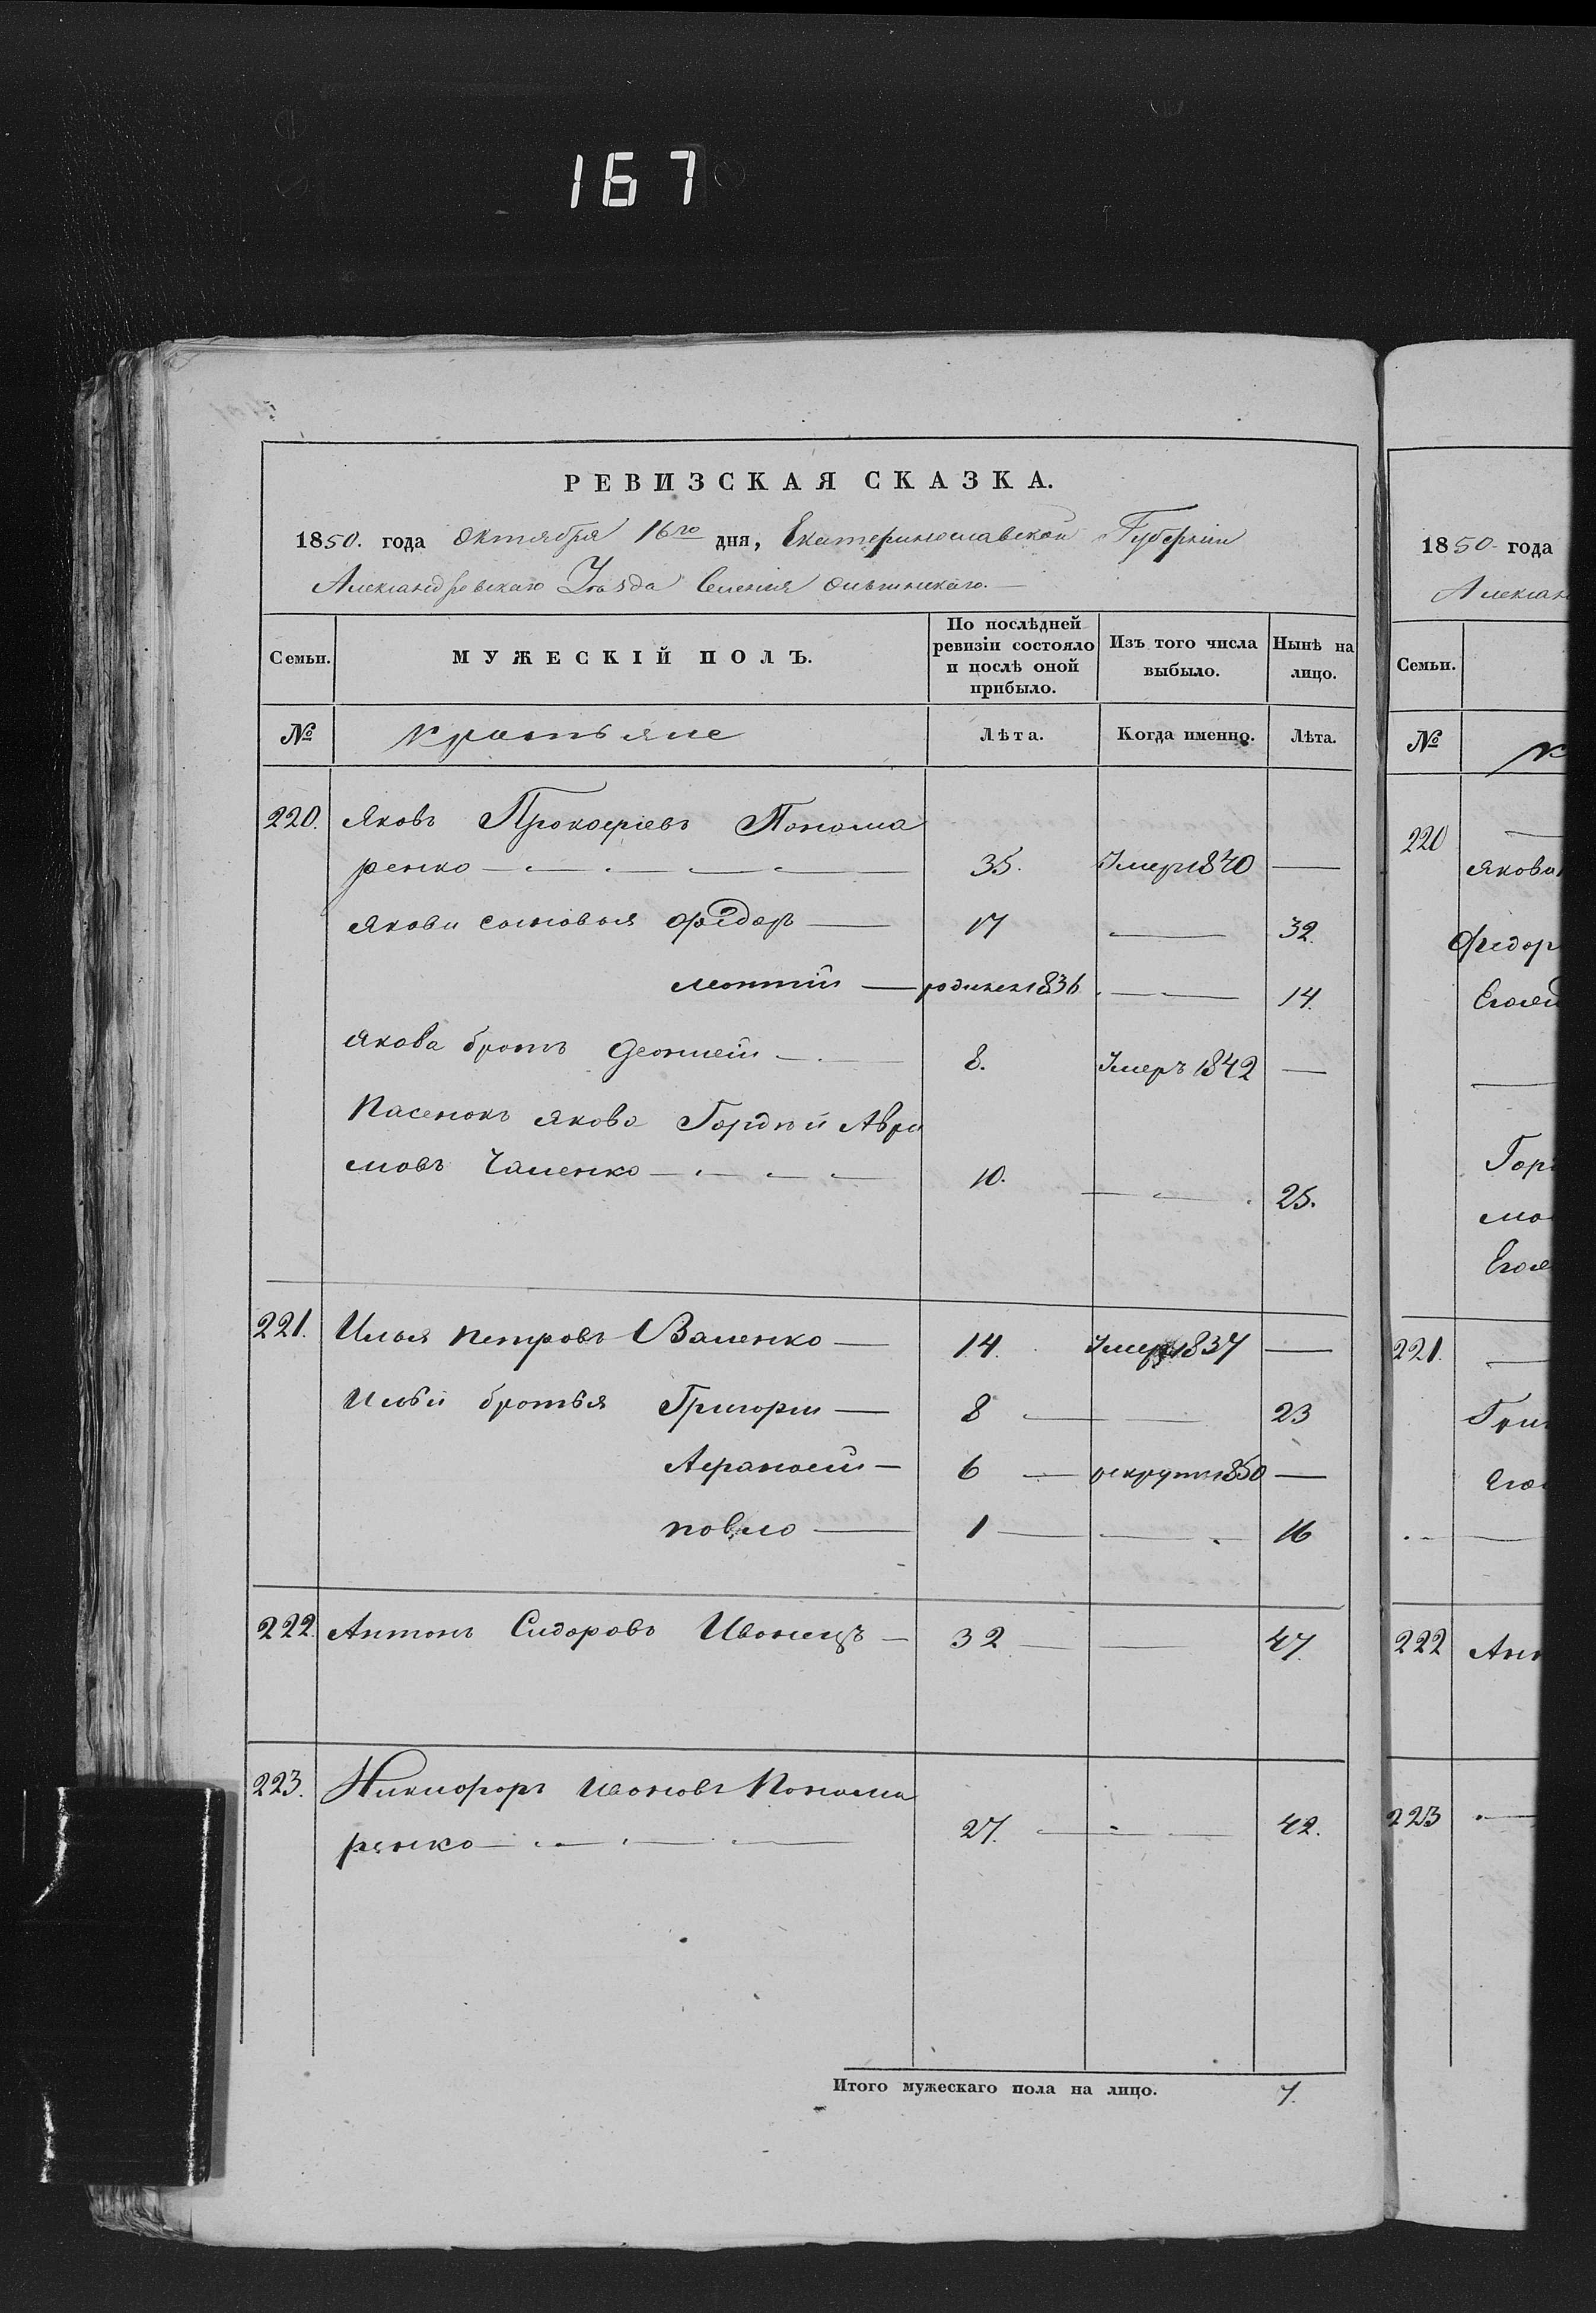 167
РЕВИЗСКАЯ СКАЗКА.
1850. года Октября 16го дня, Екатеринославской Губерніи
Александровскаго Уѣзда Селенія
Семьи.
МУЖЕСКІЙ ПОЛЪ.
По послѣдней ревизіи состояло и послѣ оной прибыло.
Изъ того числа выбыло.
Нынѣ на лицо.
№ крестьяне Лѣта. Когда именно. Лѣта.
220. Яковъ Прокофіевъ Понома
ренко — 35. Умеръ 1840 —
Якова сыновья Федоръ — 17 — 32.
Леонтій — родился 1836 — 14.
Якова братъ — 8. Умеръ 1842 —
Пасенокъ Якова Гордѣй Авра
мовъ — 10. — 25.
221. Илья Петровъ — 14. Умеръ 1837 —
Ильи братья Григорій — 8 — 23
Афанасій — 6 — рекрутъ 1850 —
Павло — 1 — 16
222. Антонъ Сидоровъ Иванецъ — 32 — 47.
223. Никифоръ Ивановъ Понома
ренко — 27. — 42.
Итого мужескаго пола на лицо. 7.
1850 года
Алексан
Семьи.
№
220
Якова
Федор
Гор
221.
Гри
222 Ант
223